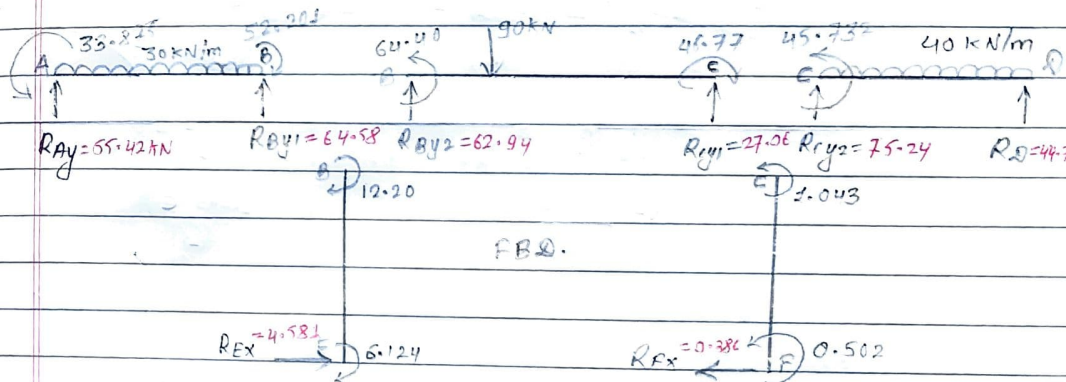 33.825 52.201 64.40 90kN 45.77 45.732 40 kN/m
A 30kN/m B B C C D
RAy=55.42kN RBy1=64.58 RBy2=62.94 Rcy1=27.06 Rcy2=75.24 RD=44.7
B 12.20 C 1.043
FBD.
REx=4.581 E 6.124 RFx=0.386 F 0.502